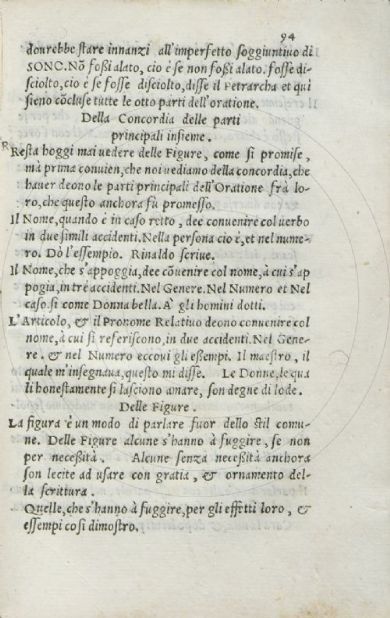 94
dourebbe stare innanzi all'imperfetto soggiuntiuo di
SONO. Nõ foßi alato, cio è se non foßi alato. fosse di-
sciolto, cio è se fosse disciolto, disse il Petrarcha et quì
sieno cõcluse tutte le otto parti dell'oratione.
Della Concordia delle parti
principali insieme.
Resta hoggi mai vedere delle Figure, come si promise,
mà prima conuien, che noi vediamo della concordia, che
hauer deono le parti principali dell'Oratione frà lo-
ro, che questo anchora fù promesso.
Il Nome, quando è in caso retto, dee conuenire col uerbo
in due simili accidenti. Nella persona cio è, et nel nume-
ro. Dò l'essempio. Rinaldo scriue.
Il Nome, che s'appoggia, dee cõuenire col nome, à cui s'ap
pogia, in trè accidenti. Nel Genere. Nel Numero et Nel
caso. sì come Donna bella. À gli homini dotti.
L'Articolo, & il Pronome Relatiuo deono conuenire col
nome, à cui si referiscono, in due accidenti. Nel Gene-
re. & nel Numero eccoui gli eßempi. Il maestro, il
quale m'insegnaua, questo mi disse. Le Donne, le qua
li honestamente si lasciono amare, son degne di lode.
Delle Figure.
La figura è un modo di parlare fuor dello stil comu-
ne. Delle Figure alcune s'hanno à fuggire, se non
per neceßità. Alcune senza neceßità anchora
son lecite ad usare con gratia, & ornamento del-
la scrittura.
Quelle, che s'hanno à fuggire, per gli effetti loro, &
essempi così dimostro.